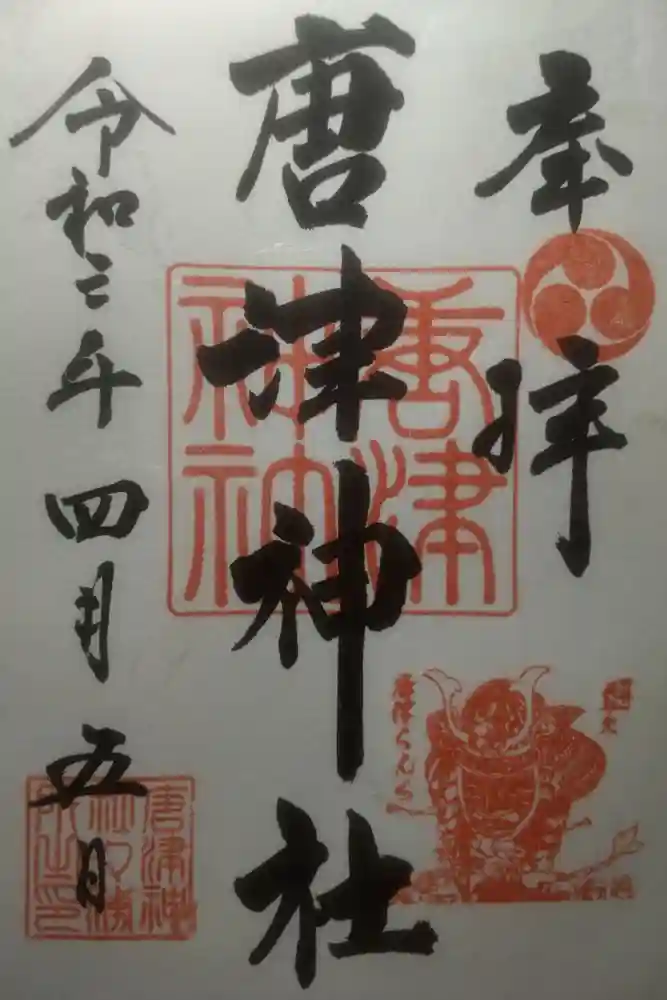 奉拝
唐津神社
唐津神社
唐津くんち
令和二年四月五日
唐津神